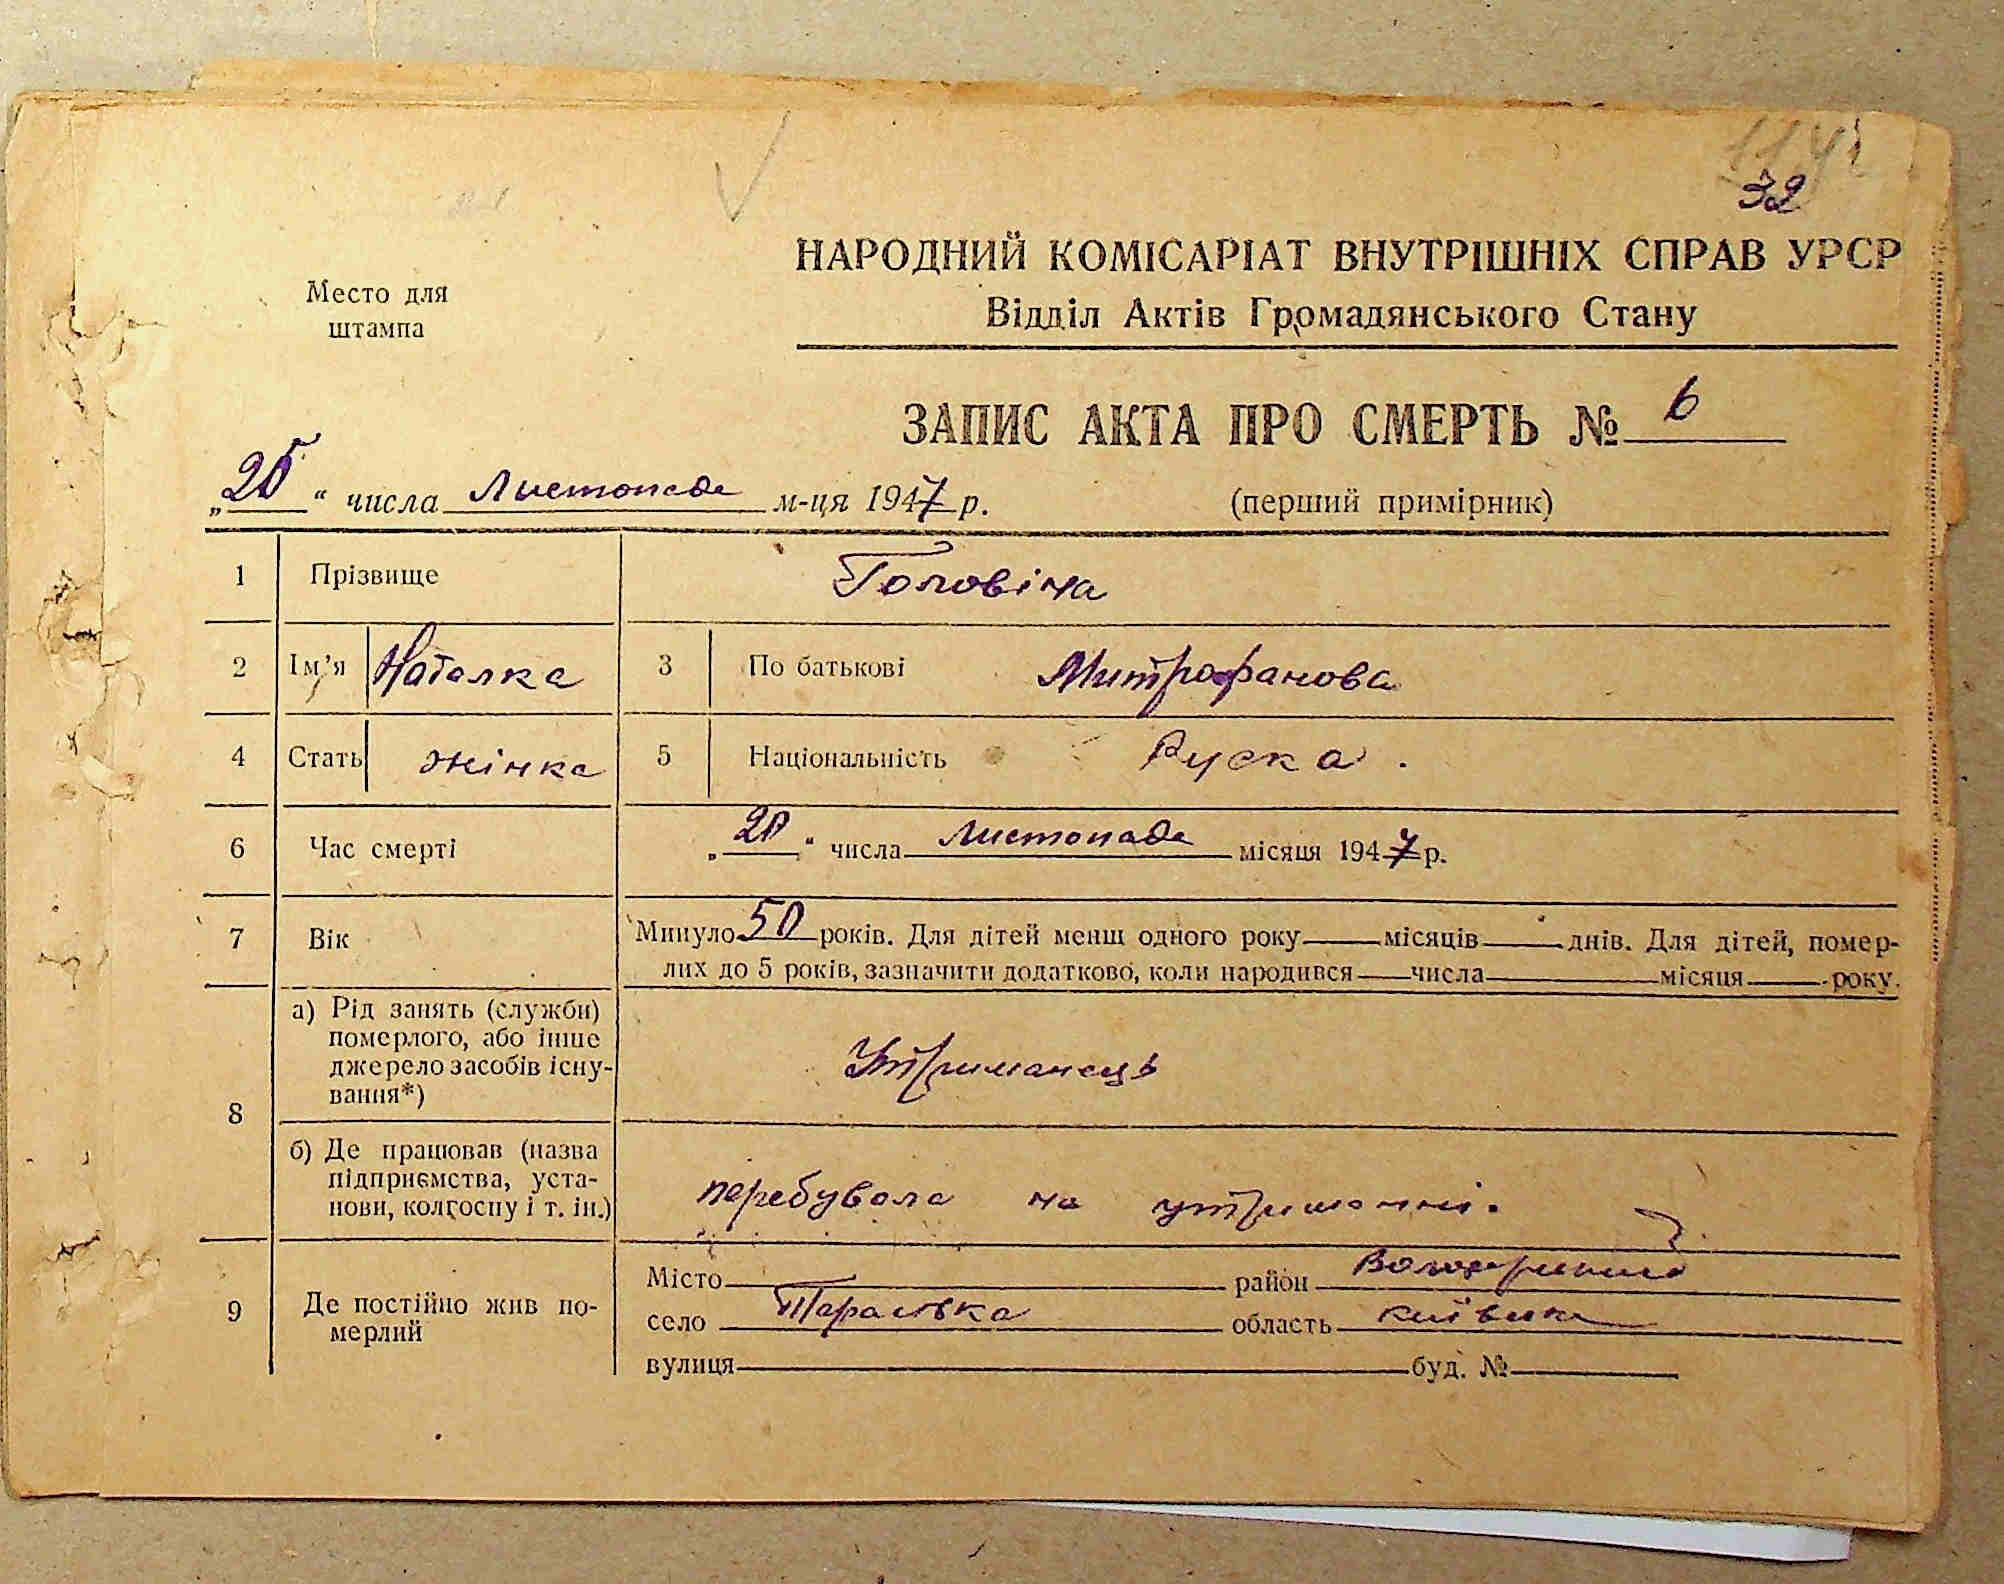 32
НАРОДНИЙ КОМІСАРІАТ ВНУТРІШНІХ СПРАВ УРСР
Место для
штампа
Відділ Актів Громадянського Стану
ЗАПИС АКТА ПРО СМЕРТЬ № 6
„25“ числа Листопада м-ця 1947 р.
(перший примірник)
1 Прізвище Головіна
2 Ім’я Наталка 3 По батькові Митрофанова
4 Стать жінка 5 Національність Руска.
6 Час смерті „20“ числа Листопада місяця 1947 р.
7 Вік Минуло 50 років. Для дітей менш одного року місяців днів. Для дітей, помер-
лих до 5 років, зазначити додатково, коли народився числа місяця року.
8 а) Рід занять (служби)
померлого, або інше
джерело засобів існу-
вання*)
Утриманець
б) Де працював (назва
підприємства, уста-
нови, колгоспу і т. ін.)
перебувала на утриманні.
9 Де постійно жив по-
мерлий
Місто район
село Тарасівка область київска
вулиця буд. №